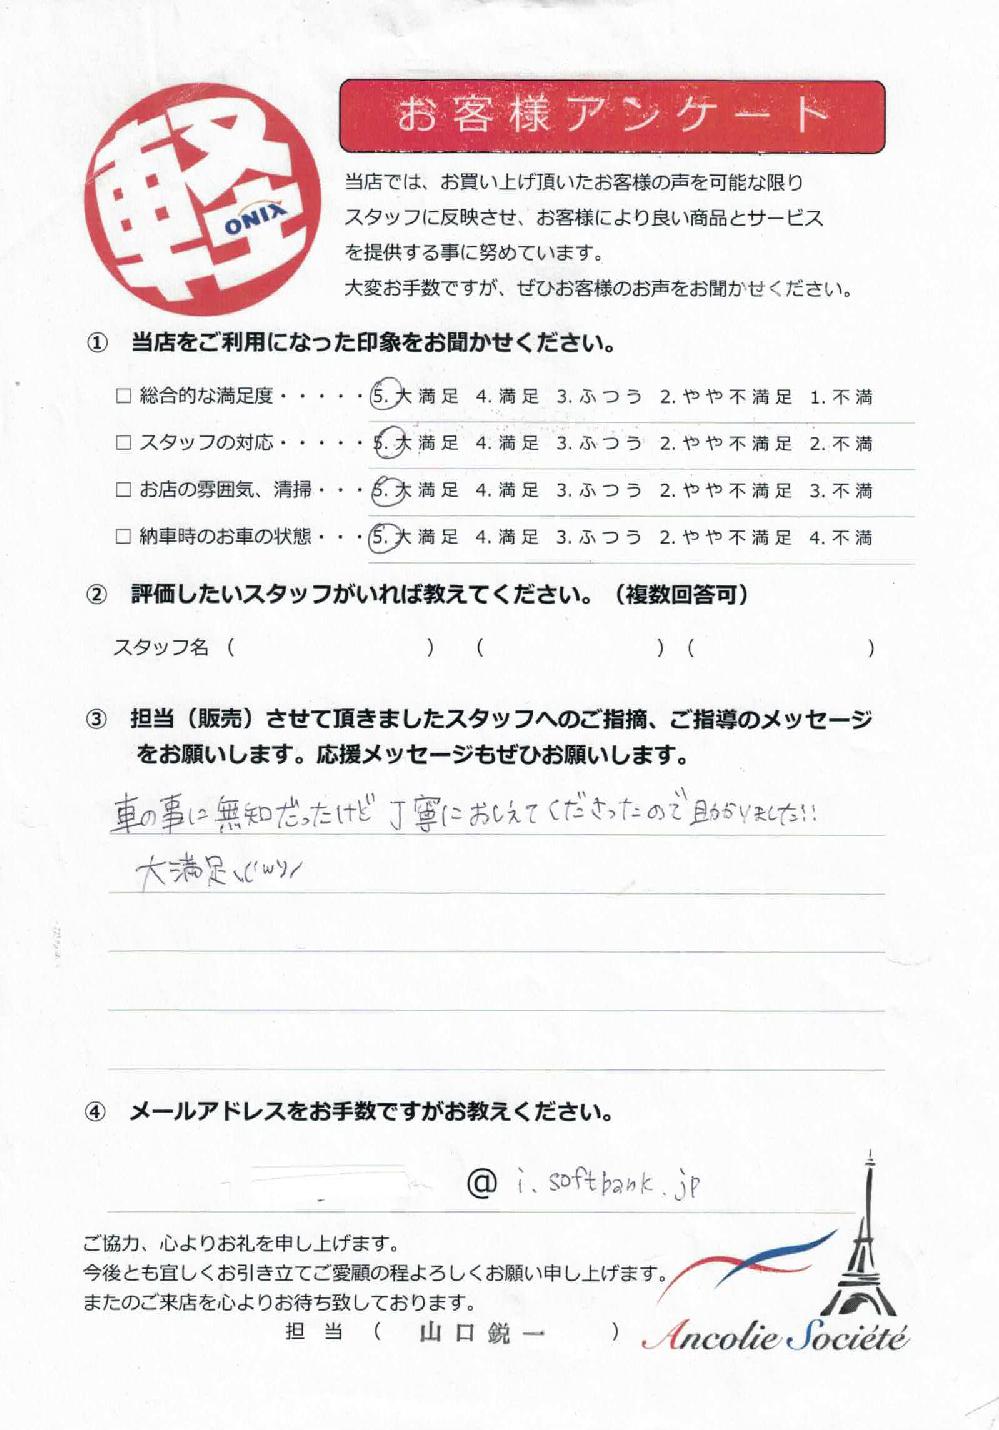 軽
ONIX
お客様アンケート
当店では、お買い上げ頂いたお客様の声を可能な限り
スタッフに反映させ、お客様により良い商品とサービス
を提供する事に努めています。
大変お手数ですが、ぜひお客様のお声をお聞かせください。
① 当店をご利用になった印象をお聞かせください。
□ 総合的な満足度・・・・・5.大満足 4.満足 3.ふつう 2.やや不満足 1.不満
□ スタッフの対応・・・・・5.大満足 4.満足 3.ふつう 2.やや不満足 2.不満
□ お店の雰囲気、清掃・・・5.大満足 4.満足 3.ふつう 2.やや不満足 3.不満
□ 納車時のお車の状態・・・5.大満足 4.満足 3.ふつう 2.やや不満足 4.不満
② 評価したいスタッフがいれば教えてください。（複数回答可）
スタッフ名（ ）（ ）（ ）
③ 担当（販売）させて頂きましたスタッフへのご指摘、ご指導のメッセージ
をお願いします。応援メッセージもぜひお願いします。
車の事に無知だったけど丁寧におしえてくださったので助かりました!!
大満足
④ メールアドレスをお手数ですがお教えください。
@ i.softbank.jp
ご協力、心よりお礼を申し上げます。
今後とも宜しくお引き立てご愛顧の程よろしくお願い申し上げます。
またのご来店を心よりお待ち致しております。
担当（ 山口鋭一 ）
Ancolie Société